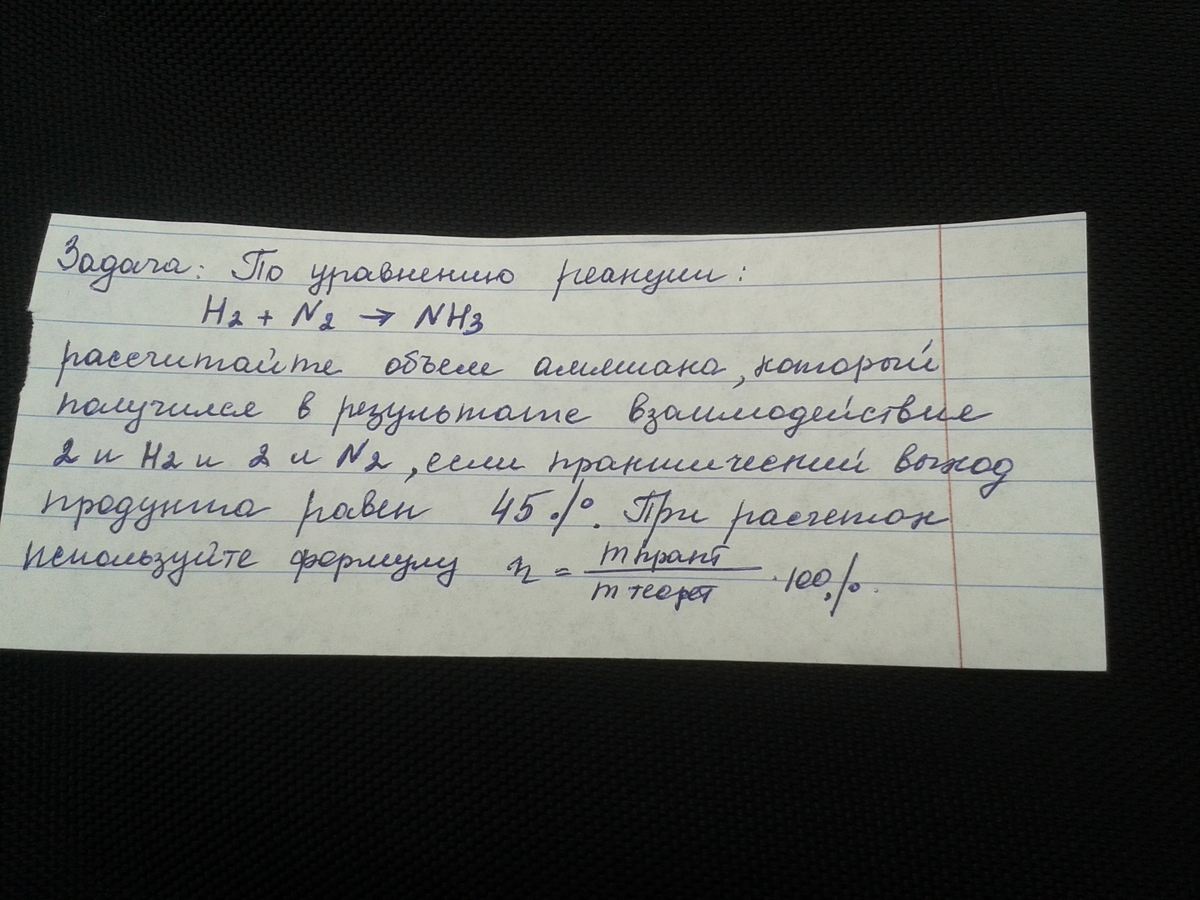 Задача: По уравнению реакции:
H₂ + N₂ → NH₃
рассчитайте объем аммиака, который
получился в результате взаимодействие
2 л H₂ и 2 л N₂, если практический выход
продукта равен 45%. При расчетах
используйте формулу η = m практ / m теорет · 100%.